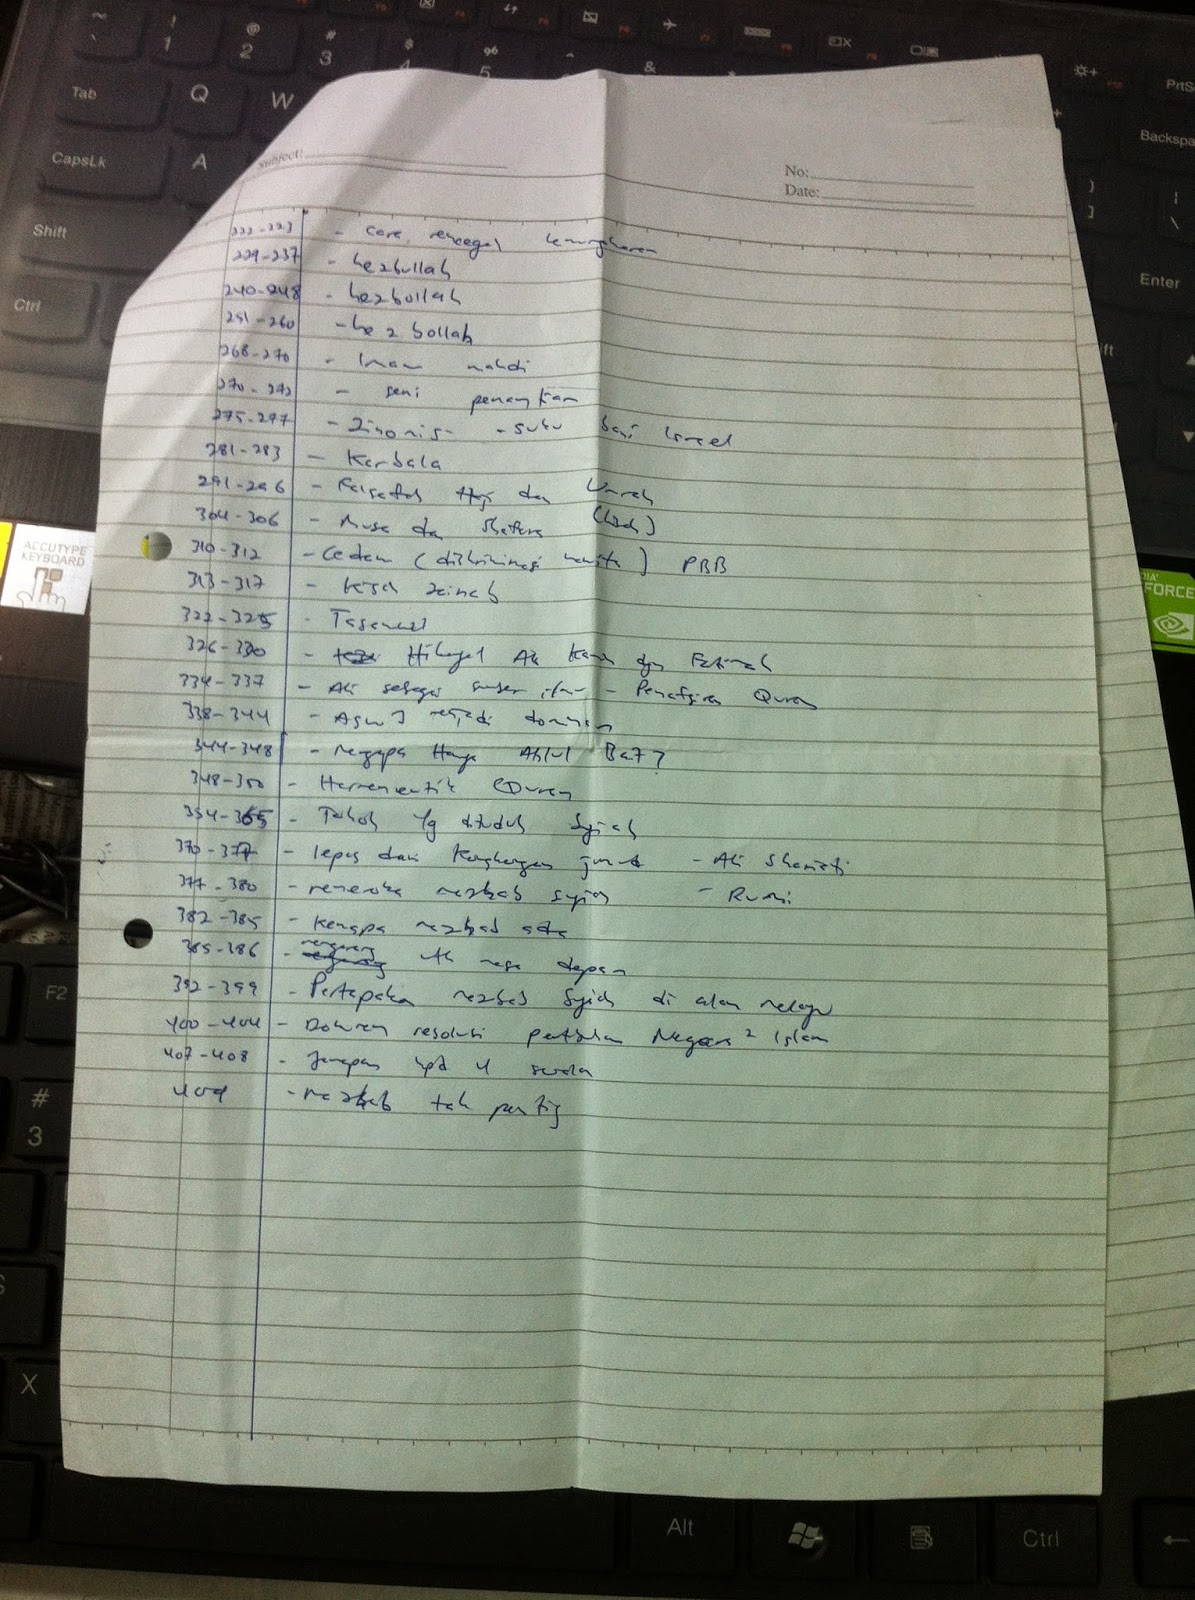 ! @ # $ % ^ &
1 2 3 4 5
Tab Q W
PrtSc
CapsLk A
Backspa
Shift
Enter
Ctrl
Subject:
No:
Date:
222-223 - cara mencegah kemungkaran
229-237 - hezbullah
240-248 - hezbollah
251-260 - hezbollah
268-270 - Imam mahdi
270-272 - seni
275-297 - Zionis - suku bani Israel
281-283 - Karbala
291-296 - Falsafah Haji dan Umrah
304-306 - Musa dan
310-312 - Cedaw (diskriminasi wanita) PBB
313-317 - kisah zainab
322-325 - Tasawuf
326-330 - Hikayat Ali kawin dgn Fatimah
334-337 - Ali sebagai sumber ilmu - Penafsiran Quran
338-344 - Aswj menjadi dominan
344-348 - mengapa Hanya Ahlul Bait?
348-350 - Hermeneutik Quran
354-365 - Tokoh yg dituduh Syiah
370-377 - lepas dari kongkongan jumud - Ali Shariati
377-380 - meneroka mazhab syiah - Rumi
382-385 - kenapa mazhab ada
385-386 - mengarang utk masa depan
392-399 - Pertapakan mazhab Syiah di alam melayu
400-404 - Dokumen resolusi pertubuhan Negara2 Islam
407-408 - Jawapan kpd 4 soalan
409 - mazhab tak penting
ACCUTYPE
KEYBOARD
FORCE
F2
#
3
X
Alt
Ctrl